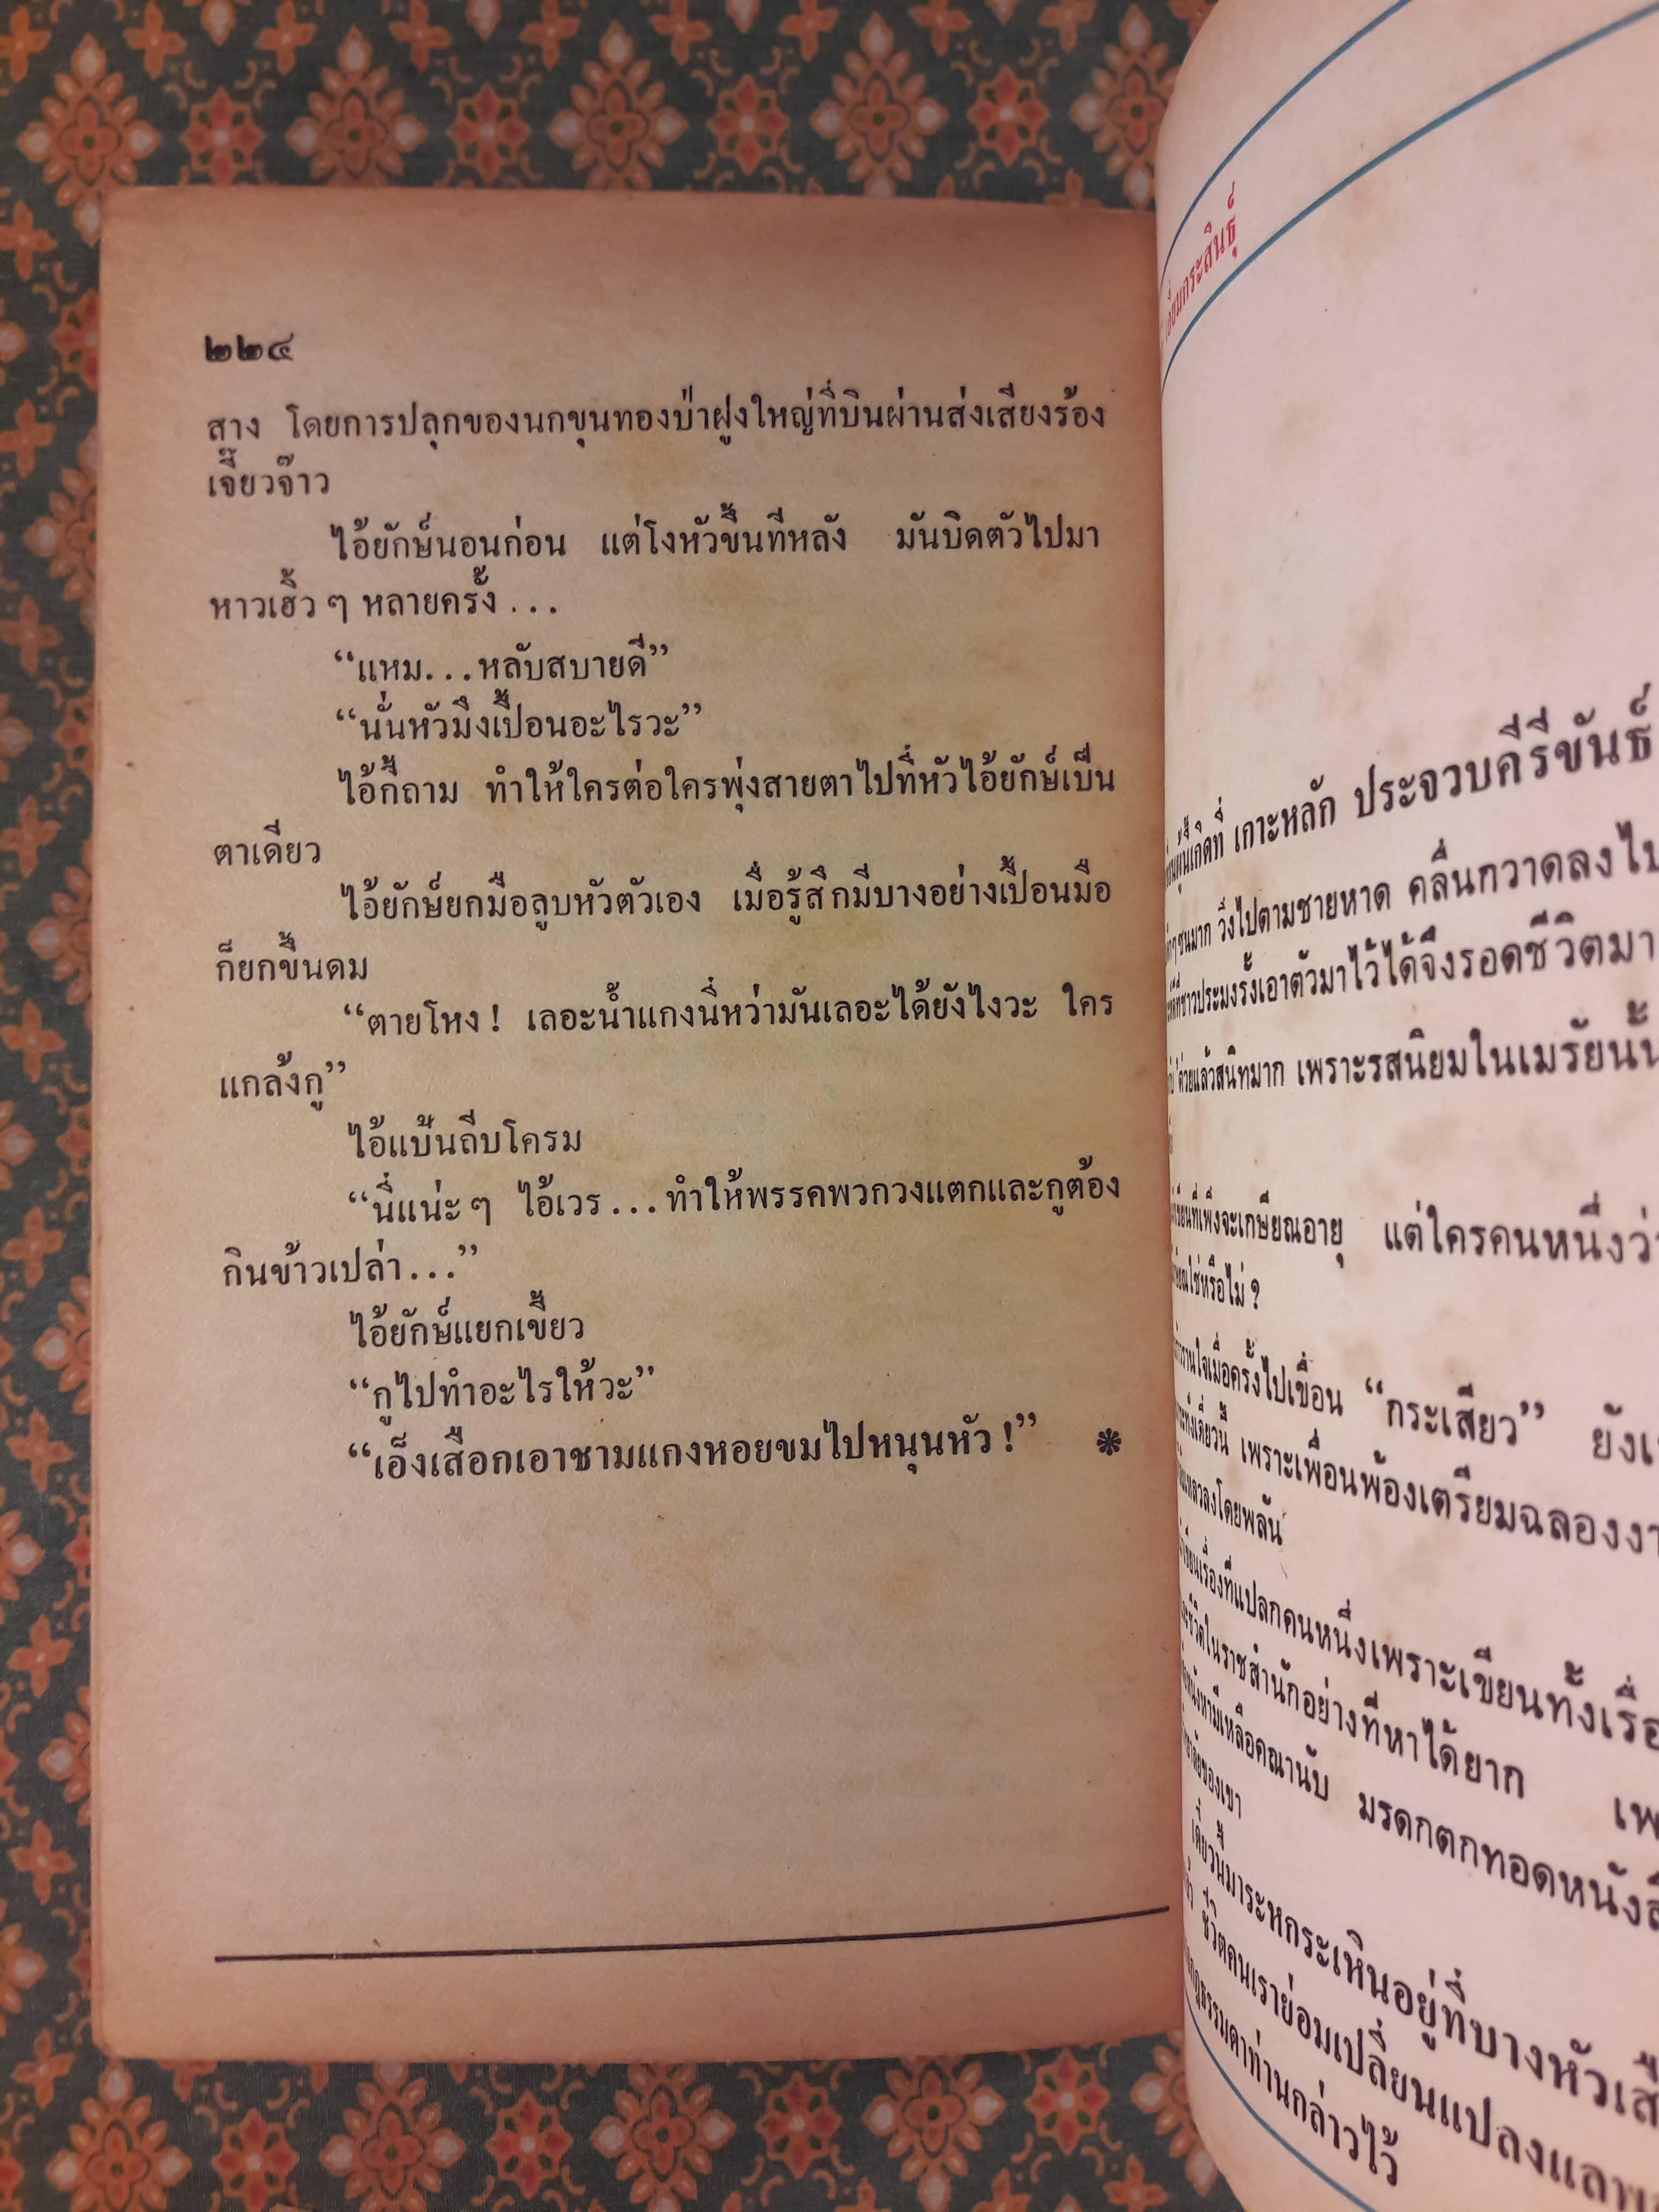 ๒๒๔
สาง โดยการปลุกของนกขุนทองป่าฝูงใหญ่ที่บินผ่านส่งเสียงร้อง
เจี๊ยวจ๊าว
ไอ้ยักษ์นอนก่อน แต่โงหัวขึ้นทีหลัง มันบิดตัวไปมา
หาวเฮิ้ว ๆ หลายครั้ง ...
“แหม...หลับสบายดี”
“นั่นหัวมึงเปื้อนอะไรวะ”
ไอ้กี้ถาม ทำให้ใครต่อใครพุ่งสายตาไปที่หัวไอ้ยักษ์เป็น
ตาเดียว
ไอ้ยักษ์ยกมือลูบหัวตัวเอง เมื่อรู้สึกมีบางอย่างเปื้อนมือ
ก็ยกขึ้นดม
“ตายโหง! เลอะน้ำแกงนี่หว่ามันเลอะได้ยังไงวะ ใคร
แกล้งกู”
ไอ้แป้นถีบโครม
“นี่แน่ะ ๆ ไอ้เวร ...ทำให้พรรคพวกวงแตกและกูต้อง
กินข้าวเปล่า...”
ไอ้ยักษ์แยกเขี้ยว
“กูไปทำอะไรให้วะ”
“เอ็งเสือกเอาชามแกงหอยขมไปหนุนหัว!” *
เกิดที่ เกาะหลัก ประจวบคีรีขันธ์
วิ่งไปตามชายหาด คลื่นกวาดลงไป
ชาวประมงรั้งเอาตัวมาไว้ได้จึงรอดชีวิตมา
ด้วยแล้วสนิทมาก เพราะรสนิยมในเมรัยนั้น
ที่เพิ่งจะเกษียณอายุ แต่ใครคนหนึ่งว่า
ใช่หรือไม่ ?
ใจเมื่อครั้งไปเขื่อน “กระเสียว”
เพราะเพื่อนพ้องเตรียมฉลอง
ลงโดยพลัน
เขียนเรื่องที่แปลกคนหนึ่งเพราะเขียนทั้ง
ชีวิตในราชสำนักอย่างที่หาได้ยาก
เหลือคณานับ มรดกตกทอด
ของเขา
เดี๋ยวนี้มาระหกระเหินอยู่ที่บาง
ชีวิตคนเราย่อมเปลี่ยนแปลง
ธรรมดาท่านกล่าวไว้